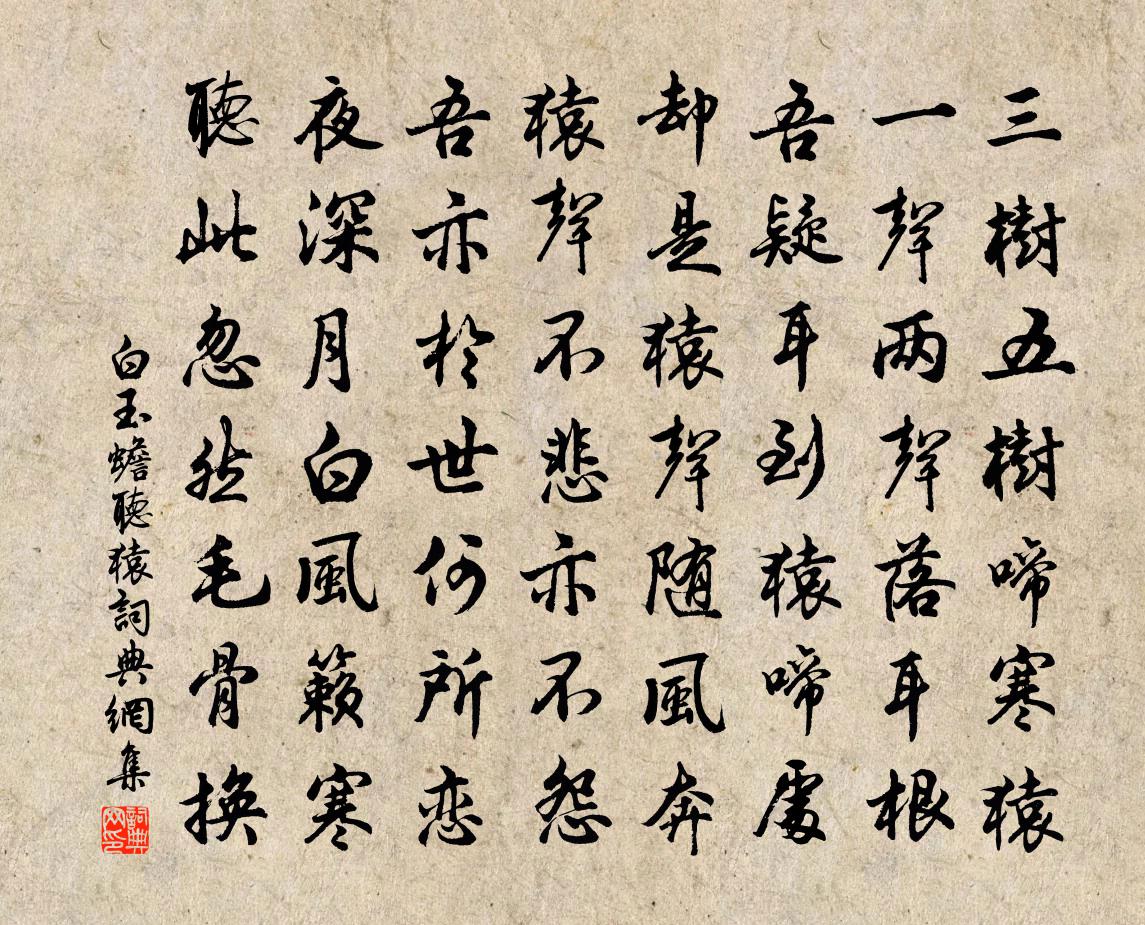 三樹五樹啼寒猿
一聲兩聲落耳根
吾疑耳到猿啼處
却是猿聲随風奔
猿聲不悲亦不怨
吾亦於世何所恋
夜深月白風籟寒
聽此忽然毛骨換
白玉蟾聽猿詞典網集
詞典
网印